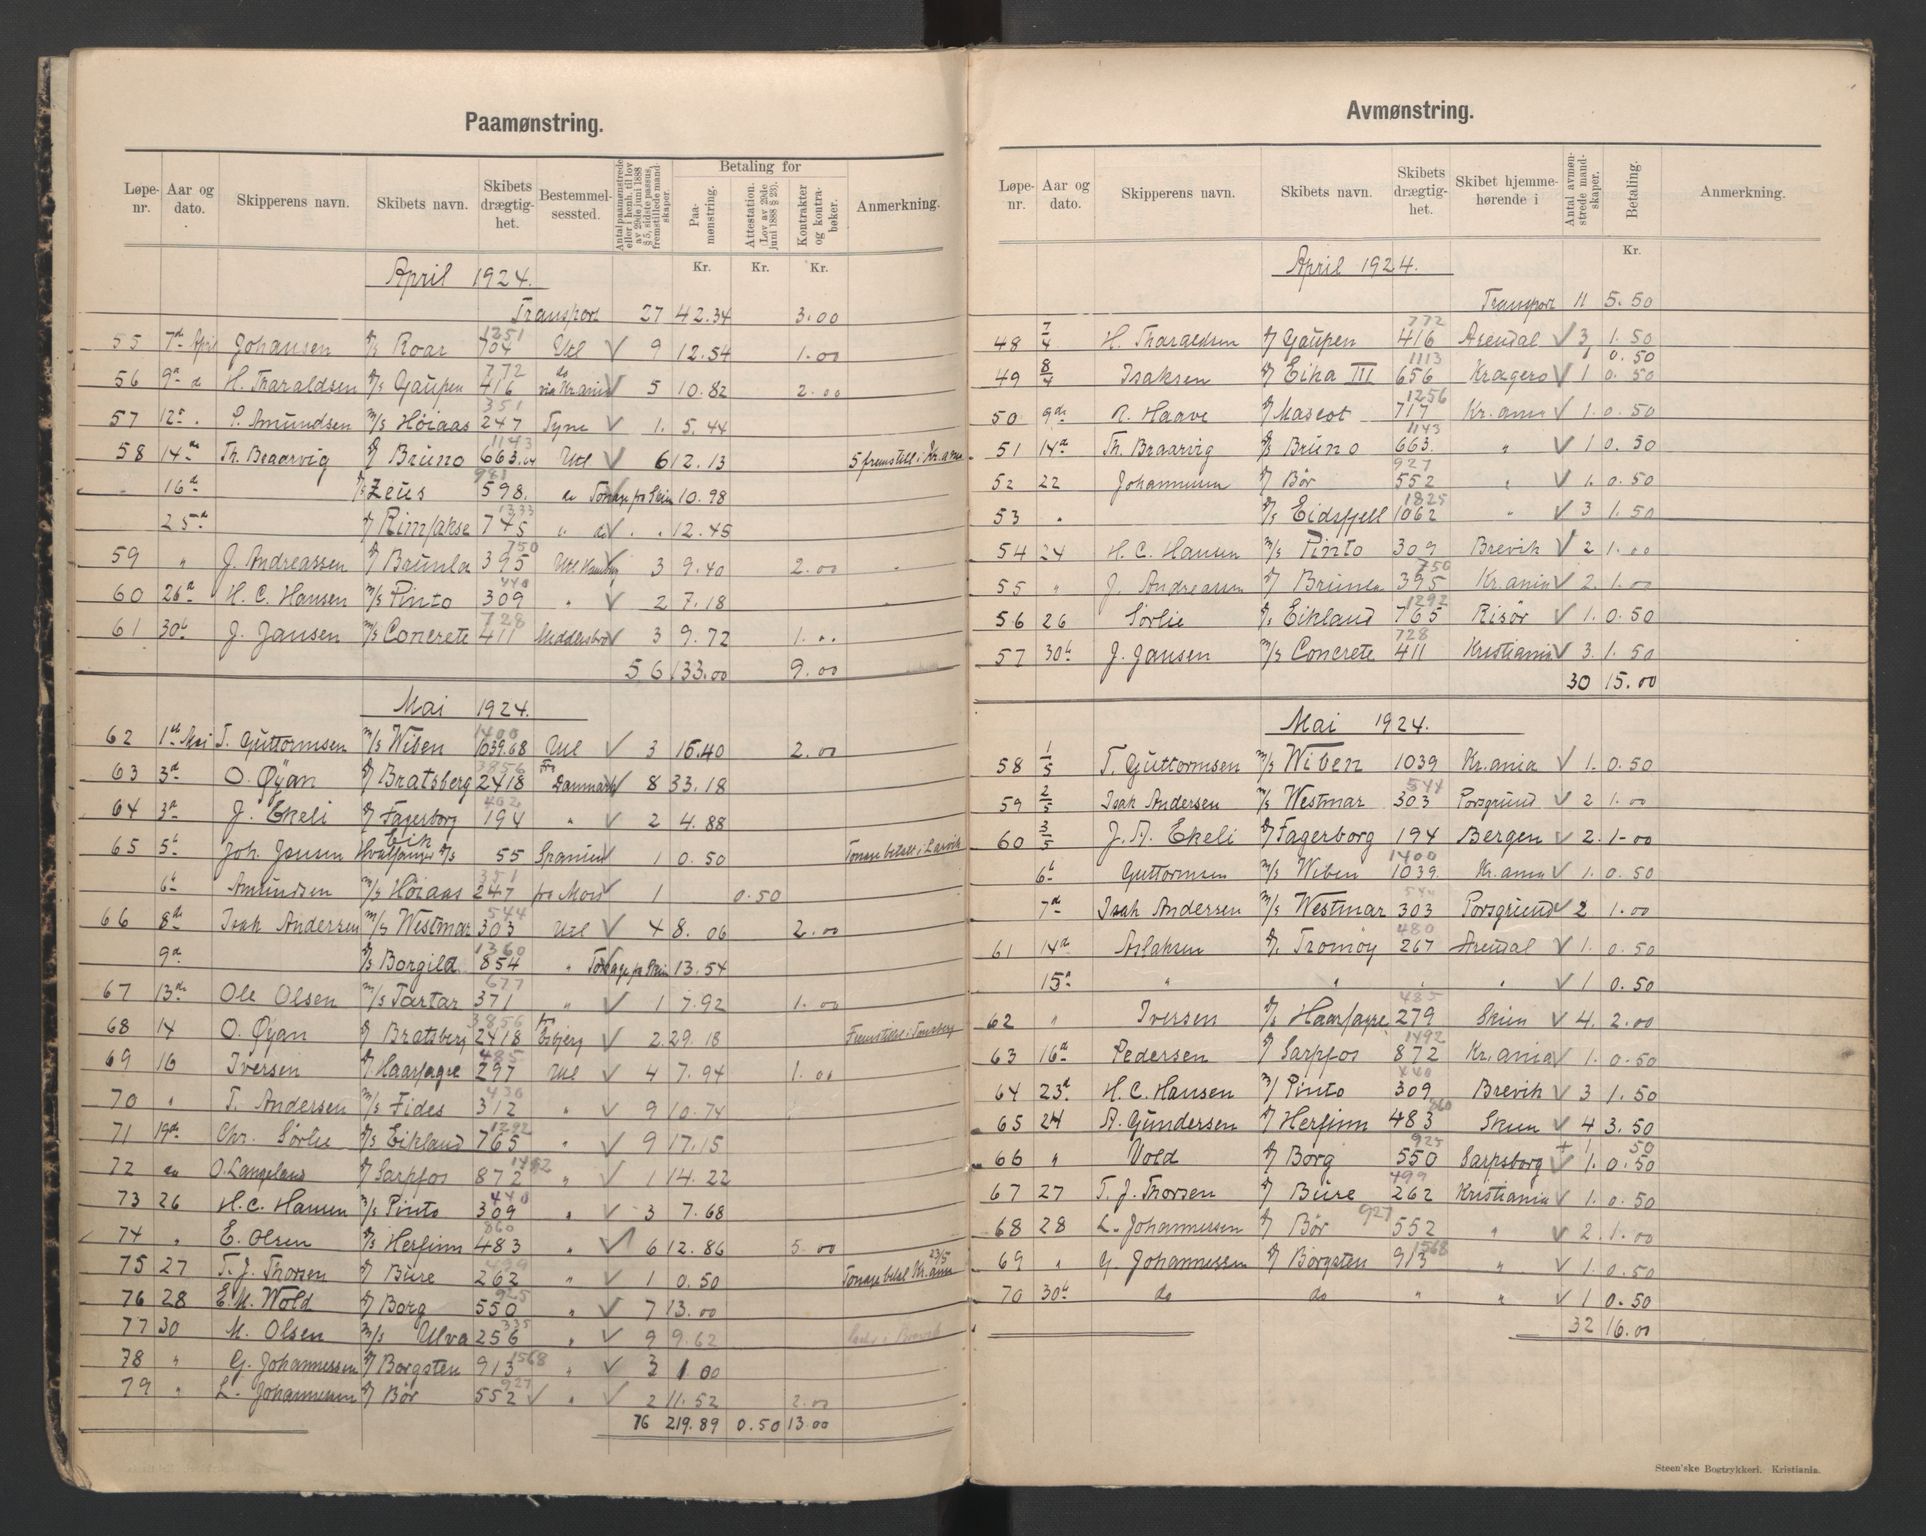 Paamønstring.
Løpe-nr. Aar og dato. Skipperens navn. Skibets navn. Skibets drægtig-het. Bestemmel-sessted. Antal paamønstrede eller henh. til lov av 29de juni 1888 § 5, sidste passus, fremstillede mand-skaper. Betaling for Paa-mønstring. Attestation. (Lov av 29de juni 1888 § 23). Kontrakter og kontra-bøker. Anmerkning.
Kr. Kr. Kr.
April 1924.
Transport 27 42.34 3.00
55 7de April Johansen S/S Roar 1251 704 Utl V 9 12.54 1.00
56 9de d H. Tharaldsen S/S Gaupen 772 416 do via Kr.ania V 5 10.82 2.00
57 12te . P. Amundsen M/S Höiaas 351 247 Tyne V 1. 5.44
58 14de Th. Braarvig S/S Bruno 1143 663.64 Utl V 6 12.13 5 fremstill i Kr.ania
16de S/S Zeus 981 598. do Tonage fra Skien 10.98
25de S/S Rimfakse 1333 745 " do V . . 12.45
59 " J. Andreassen S/S Brunla 750 395 Utl Hamburg 3 9.40 2.00
60 26de H. C. Hansen M/S Pinto 440 309 " V 2 7.18
61 30te J. Jansen M/S Concrete 728 411 Middelsbro V 3 9.72 1. "
56 133.00 9.00
Mai 1924.
62 1ste Mai T. Guttormsen M/S Wiben 1400 1039.68 Utl V 3 16.40 2.00
63 3de O. Øyan S/S Bratsberg 3856 2418 Fra Danmark V 8 33.18
64 3de J. Ekeli S/S Fagerborg 402 194 " V 2 4.88
65 5te Joh. Jensen Hvalfanger S/S Eik 55 Spanien V 1 0.50 Tonage betalt i Larvik
6te Amundsen M/S Höiaas 351 247 fra Moss V 1 0.50
66 8de Isak Andersen M/S Westmar 544 303 Utl V 4 8.06 2.00
9de S/S Borgild 1360 854 " Tonage fra Skien 13.54
67 13de Ole Olsen M/S Tartar 677 371 " V 1 7.92 1.00
68 14 O. Øyan S/S Bratsberg 3856 2418 fra Esbjerg V 2. 29.18 Fremstillet i Tønsberg
69 16 Iversen S/S Haarfagre 485 297 Utl V 4 7.94 1.00
70 " T. Andersen M/S Fides 430 312 " V 9 10.74
71 19de Chr. Sörlie S/S Eikland 1292 765 " V 9 17.15
72 O. Langeland S/S Sarpfos 1492 872 " V 1 14.22
73 26 H.C. Hansen M/S Pinto 440 309 " V 3 7.68
74 " E. Olsen S/S Herfinn 860 483 " V 6 12.86 5.00
75 27 T. J. Thorsen S/S Bure 499 262 " V 1 0.50 Tonage betal Kr.ania 23/5
76 28 E. M. Wold S/S Borg 925 550 " V 7 13.00
77 30 M. Olsen M/S Ulva 335 256 " V 9 9.62
78 " G. Johannessen S/S Borgsten 1568 913 " V 3 1.00
79 " L. Johannessen S/S Bör 927 552 V " V 2 11.52 2.00
76 219.89 0.50 13.00
Avmønstring.
Løpe-nr. Aar og dato. Skipperens navn. Skibets navn. Skibets drægtig-het. Skibet hjemme-hørende i Antal avmøn-strede mand-skaper. Betaling. Anmerkning.
Kr.
April 1924.
Transport 11 5.50
48 7/4 H. Tharaldsen S/S Gaupen 772 416 Arendal V 3, 1.50
49 8/4 Isaksen S/S Eika III 1113 656 Kragerø V 1 0.50 0.50
50 9de R. Haave S/S Mascot 1256 717 Kr.ania V 1. 0.50
51 14de Th. Braarvig S/S Bruno 1143 663. " V 1 0.50
52 22 Johannesen S/S Bör 927 552 " V 1. 0.50
53 " S/S Eidsfjell 1825 1062 " V 3 1.50
54 24 H. C. Hansen M/S Pinto 309 Brevik V 2 1.00
55 " J. Andreassen S/S Brunla 750 395 Kr.ania V 2. 1.00
56 26 Sörlie S/S Eikland 1292 765 Risör V 1. 0.50
57 30te J. Jansen M/S Concrete 728 411 Kristiania V 3. 1.50
30 15.00
Mai 1924.
58 1/5 T. Guttormsen M/S Wiben 1039 Kr.ania V 1. 0.50
59 2/5 Isak Andersen M/S Westmar 544 303 Porsgrund V 2 1.00
60 3/5 J. A. Ekeli S/S Fagerborg 194 Bergen V 2. 1.00
6te Guttormsen M/S Wiben 1400 1039 Kr.ania V 1. 0.50
7de Isak Andersen M/S Westmar 544 303 Porsgrund V 2 1.00
61 14de Aslaksen S/S Tromöy 480 267 Arendal V 1. 0.50
15de " " " " V 1 0.50
62 " Iversen S/S Haarfagre 485 279 Skien V 4. 2.00
63 16de Pedersen S/S Sarpfos 1492 872 Kr.ania V 1. 0.50
64 23de H. C. Hansen M/S Pinto 440 309 Brevik V 3 1.50
65 24 A. Gundersen S/S Herfinn 860 483 Skien V 4 3.50
66 " Vold S/S Borg 925 550 Sarpsborg V + 1 1. 50 0.50
67 27 T. J. Thorsen S/S Bure 499 262 Kristiania V 1. 0.50
68 28 L. Johannessen S/S Bör 927 552 " V 2. 1.00
69 " G. Johannessen S/S Borgsten 1568 913 " V 1. 0.50
70 30te do do " " V 1 0.50
32 16.00
Steen'ske Bogtrykkeri. Kristiania.